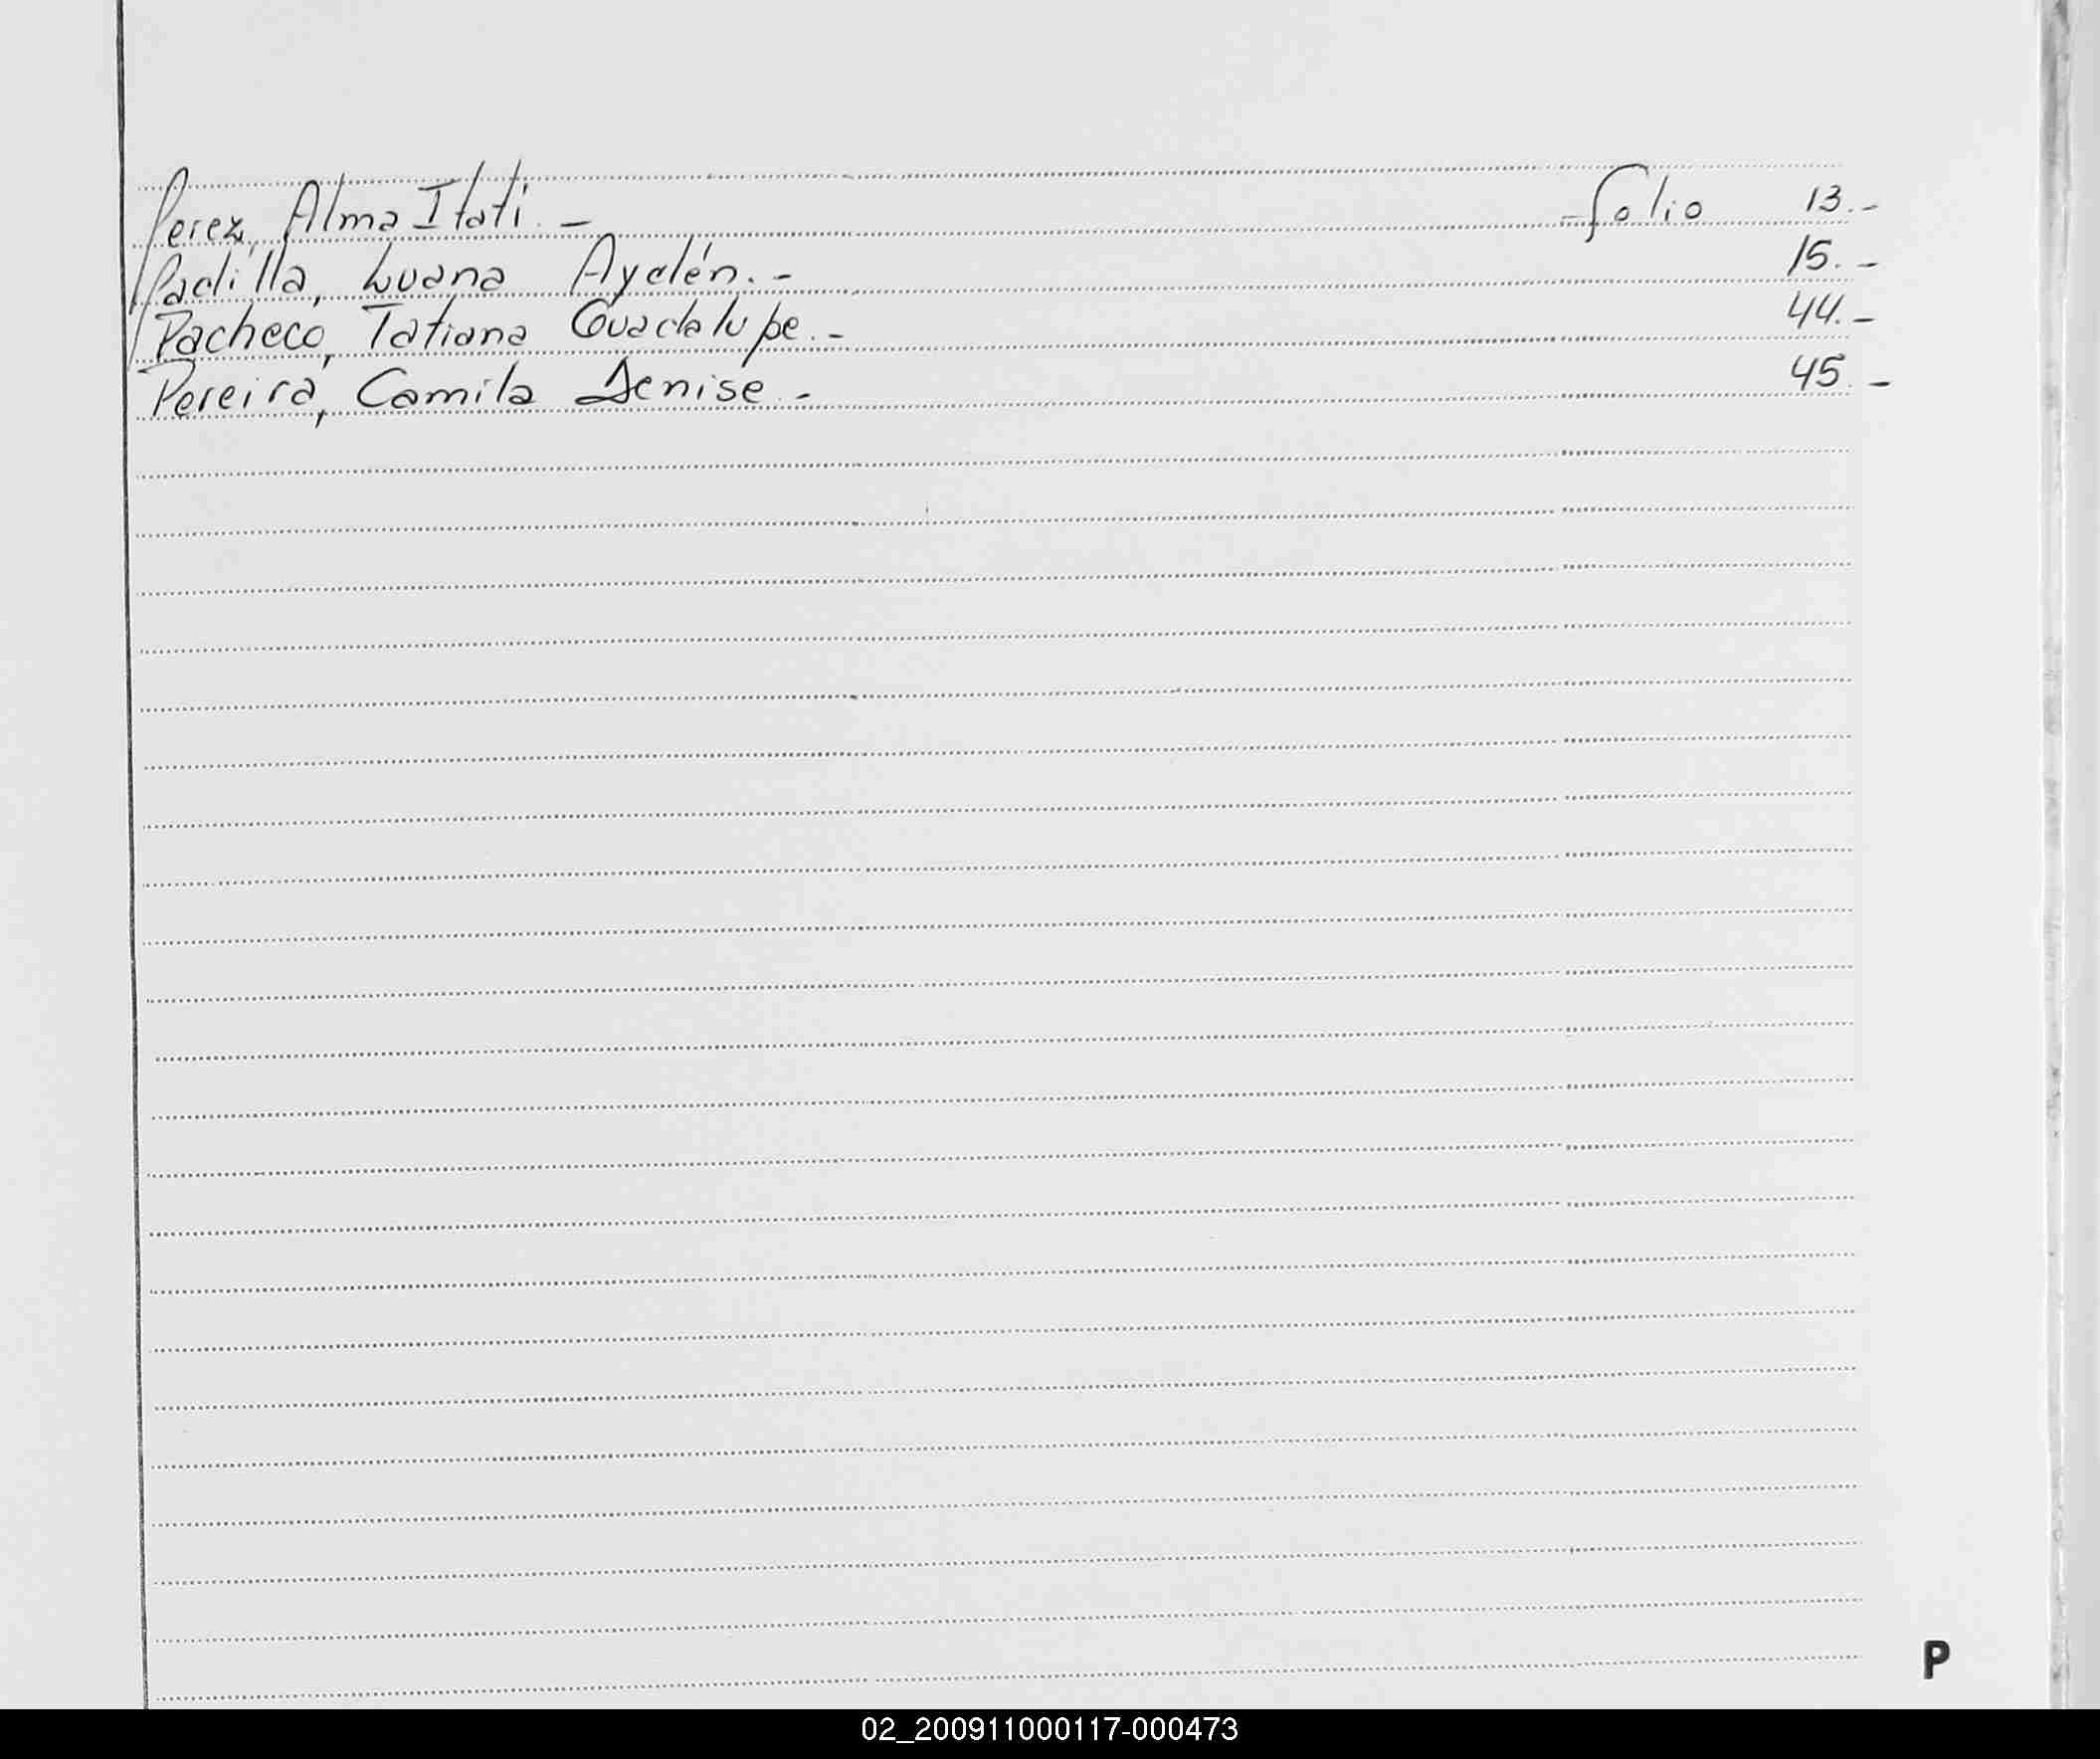 Perez, Alma Itati.- folio 13.-
Padilla, Luana Ayelén.- 15.-
Pacheco, Tatiana Guadalupe.- 44.-
Pereira, Camila Denise.- 45.-
P
02_200911000117-000473